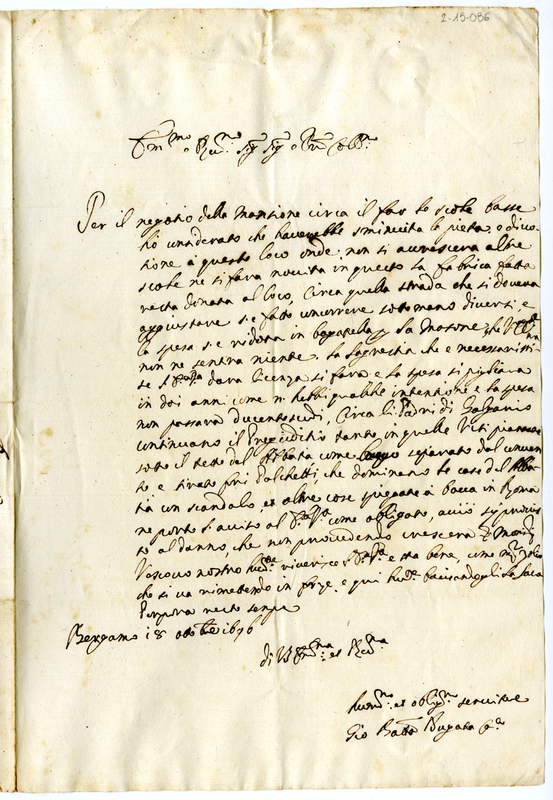 2-15-086
Em.mo e Rev.mo Sig. Sig. e Pron Coll.mo
Per il negotio della Mansione circa il far le scole basse
hò considerato che haverebbe sminuita la pietà, o divo
tione à questo loco onde non si accrescera altre
scole ne si farà novita in questo la fabrica fatta
resta donata al loco, Circa quella strada che si doveva
aggiustare s'è fatto concorrere sotto mano diversi, e
la spesa s'è ridotta in bagatella, la Masone, che V.
non ne sentira niente. la sagrestia che è necessarissi-
se darà licenza si farà e la spesa si pigliara
in doi anni come n'hebbi qualche intentione e la spesa
non passarà ducento scudi, Circa li Padri di Galgario
continuano il Pregiuditio tanto in quelle Viti piantate
sotto il tetto del Abbate come luogo separato dal conven
to e tirato poi Palchetti, che dominano le case del
tà un scandalo, et altre cose spiegate à bocca in Roma
ne porto s.avviso al come obligato, acciò si provis
to al danno, che non provedendo crescerà
Vescovo nostro riverisce e sta bene, come
che si va rimettendo in forze. e qui bacciandogli la sacra
Porpora resto sempre
Bergamo 18 ottobre 1676
di V. Em.za et Rev.ma
Hum.mo et oblig.mo servitore
Gio Batta